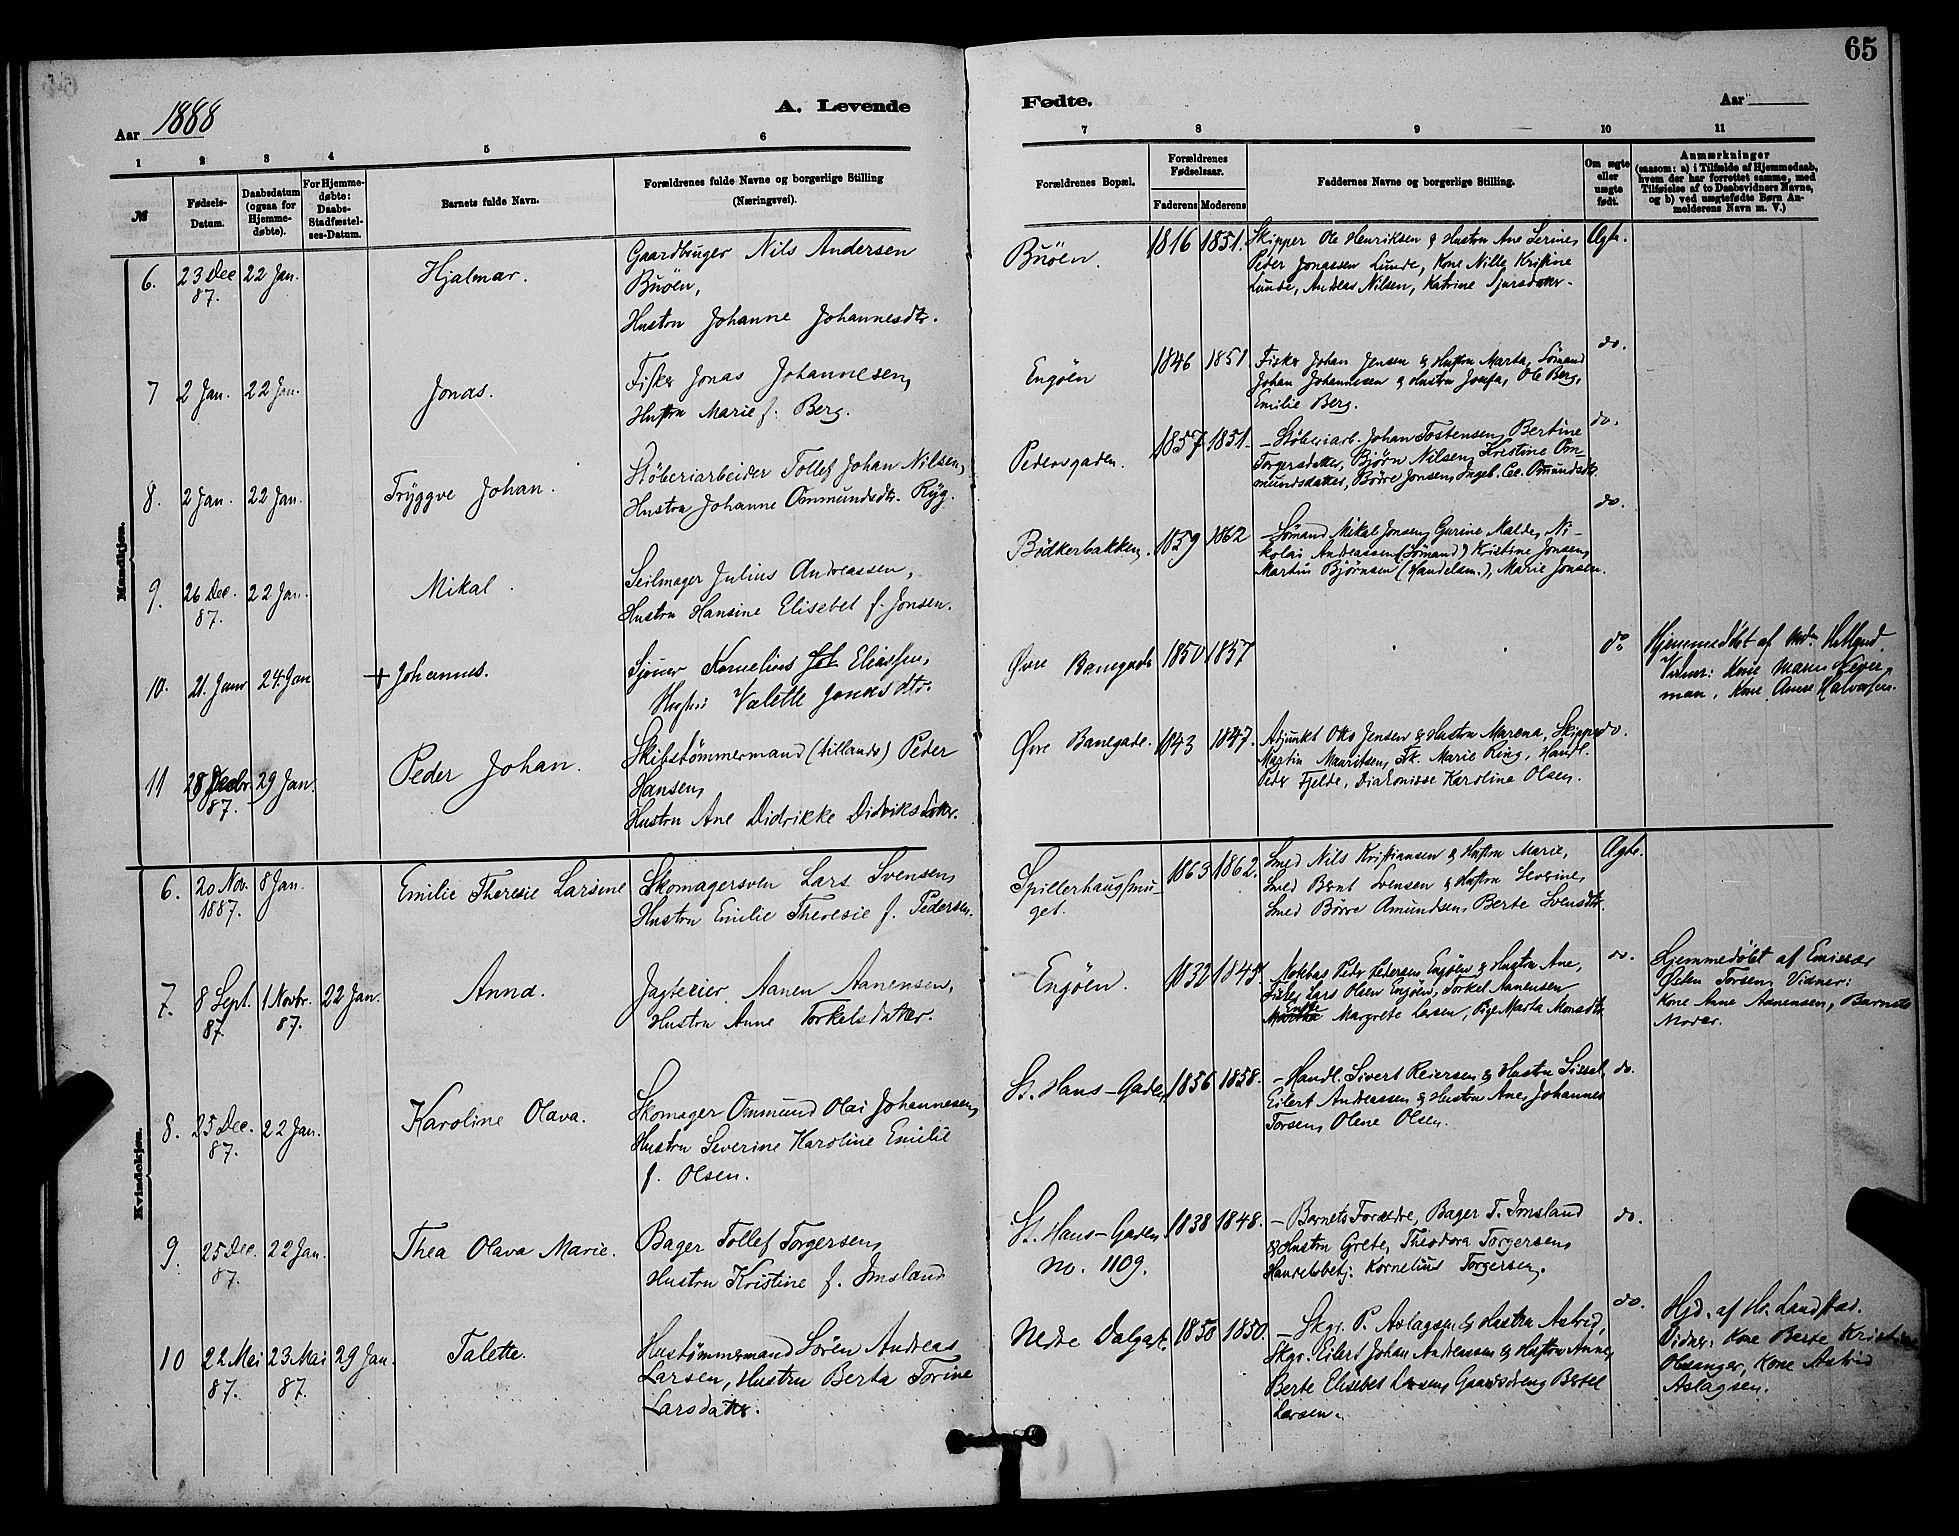 65
Aar 1888
A. Levende
Fødte.
Aar
1 2 3 4 5 6
7 8 9 10 11
№
Fødsels-Datum.
Daabsdatum (ogsaa for Hjemme-døbte).
For Hjemme-døbte: Daabs-Stadfæstel-ses-Datum.
Barnets fulde Navn.
Forældrenes fulde Navne og borgerlige Stilling
(Næringsvei).
Forældrenes Bopæl.
Forældrenes Fødselsaar.
Faderens Moderens
Faddernes Navne og borgerlige Stilling.
Om ægte eller uægte født.
Anmærkninger
(saasom: a) i Tilfælde af Hjemmedaab,
hvem der har forrettet samme, med
Tilføielse af to Daabsvidners Navne,
og b) ved uægtefødte Børn An-
melderens Navn m. V.)
Mandkjøn.
6. 23 Dec 87. 22 Jan. Hjalmar.
Gaardbruger Nils Andersen
Buöen,
Hustru Johanne Johannesdtr.
Buöen. 1816 1851.
Skipper Ole Henriksen & Hustru Ane Serine,
Peder Jonassen Lunde, Kone Nille Kristine
Lunde, Andreas Nilsen, Katrine Sjursdatter.
Ægte.
7 2 Jan. 22 Jan. Jonas.
Fisker Jonas Johannesen,
Hustru Marie f. Berg.
Engöen 1846 1851
Fisker Johan Jensen & Hustru Marta, Sömand
Johan Johannesen & Hustru Josefa, Ole Berg,
Emilie Berg.
do.
8. 2 Jan. 22 Jan. Tryggve Johan.
Stöberiarbeider Tollef Johan Nilsen,
Hustru Johanne Ommundsdtr. Ryg.
Pedersgaden. 1857 1851.
– Stöberiarb. Johan Tostensen, Bertine
Torgersdatter, Bjørn Nilsen, Kristine Om-
mundsdatter, Börre Jonsen, Ingeb. Ce. Omundsdtr.
do.
9. 26 Dec. 87. 22 Jan. Mikal.
Seilmager Julius Andreassen,
Hustru Hansine Elisebet f. Jonsen.
Bödkerbakken. 1859 1862
– Sömand Mikal Jonsen, Gurine Malde, Ni-
kolai Andreassen (Sömand) Kristine Jonsen,
Martin Bjørnsen (Handelsm.), Marie Jonsen.
do.
10. 21. Janr 24. Jan + Johannes.
Sjöner Kornelius Eliassen,
Hustru Valette Jonasdtr.
Øvre Banegade 1850 1857
do
Hjemmedöbt af
Vidner: Kone
man, Kone Anne Halvorsen.
11 28 Decbr. 87. 29 Jan. Peder Johan.
Skibstömmermand (tillands) Peder
Hansen,
Hustru Ane Didrikke Didriksdatter.
Øvre Banegade. 1843 1847.
Adjunkt Otto Jensen & Hustru Marena, Skipper
Martin Mauritsen, Frk. Marie Ring, Handl.
Peder Fjelde, Diakonisse Karoline Olsen.
do.
Kvindekjøn.
6. 20 Nov. 1887. 8 Jan. Emilie Theresie Larsine
Skomagersven Lars Svensen,
Hustru Emilie Theresie f. Pedersen.
Spillerhaugsmu-
get. 1863 1862.
Smed Nils Kristiansen & Hustru Marie,
Smed Bernt Svensen & Hustru Severine,
Smed Börre Amundsen, Berte Svensdtr.
Ægte.
7. 8 Sept. 87 1 Novbr. 87. 22 Jan. Anna.
Jagteeier Aanen Aanensen,
Hustru Anne Torkelsdatter.
Engöen. 1832 1845
Peder Pedersen Engöen & Hustru Ane,
Fisker Lars Olsen Engöen, Torkel Aanensen
Margrete Larsen, Pige Marta Monsdtr.
do.
Hjemmedöbt af Emissær
Østen Torsen, Vidner:
Kone Anne Aanensen, Barnets
Moder.
8. 25 Dec. 87. 22 Jan. Karoline Olava.
Skomager Ommund Olai Johannesen,
Hustru Severine Karoline Emilie
f. Olsen.
St. Hans-Gade, 1856 1858.
– Handl. Sivert Reiersen & Hustru Sissel,
Eilert Andreassen & Hustru Ane, Johannes
Torsen, Olene Olsen.
do.
9. 25 Dec. 87. 22 Jan. Thea Olava Marie.
Bager Tollef Torgersen,
Hustru Kristine f. Imsland
St. Hans-Gaden
No. 1109. 1838 1848.
– Barnets Forældre, Bager T. Imsland
& Hustru Grete, Theodora Torgersen,
Handelsbetj. Kornelius Torgersen.
do.
10 22 Mai 87. 23 Mai 87. 29 Jan. Talette.
Hustömmermand Sören Andreas
Larsen, Hustru Berta Torine
Larsdatter.
Nedre Dalgat. 1850 1850.
– Skgr. P. Aslagsen & Hustru Astrid,
Skgr. Eilert Johan Andreassen & Hustru Anne,
Berte Elisebet Larsen, Gaardsdreng Bertel
Larsen.
do.
Hjd. af Hr. Landstad.
Vidner: Kone Berte Kristine
Olsanger, Kone Astrid
Aslagsen.